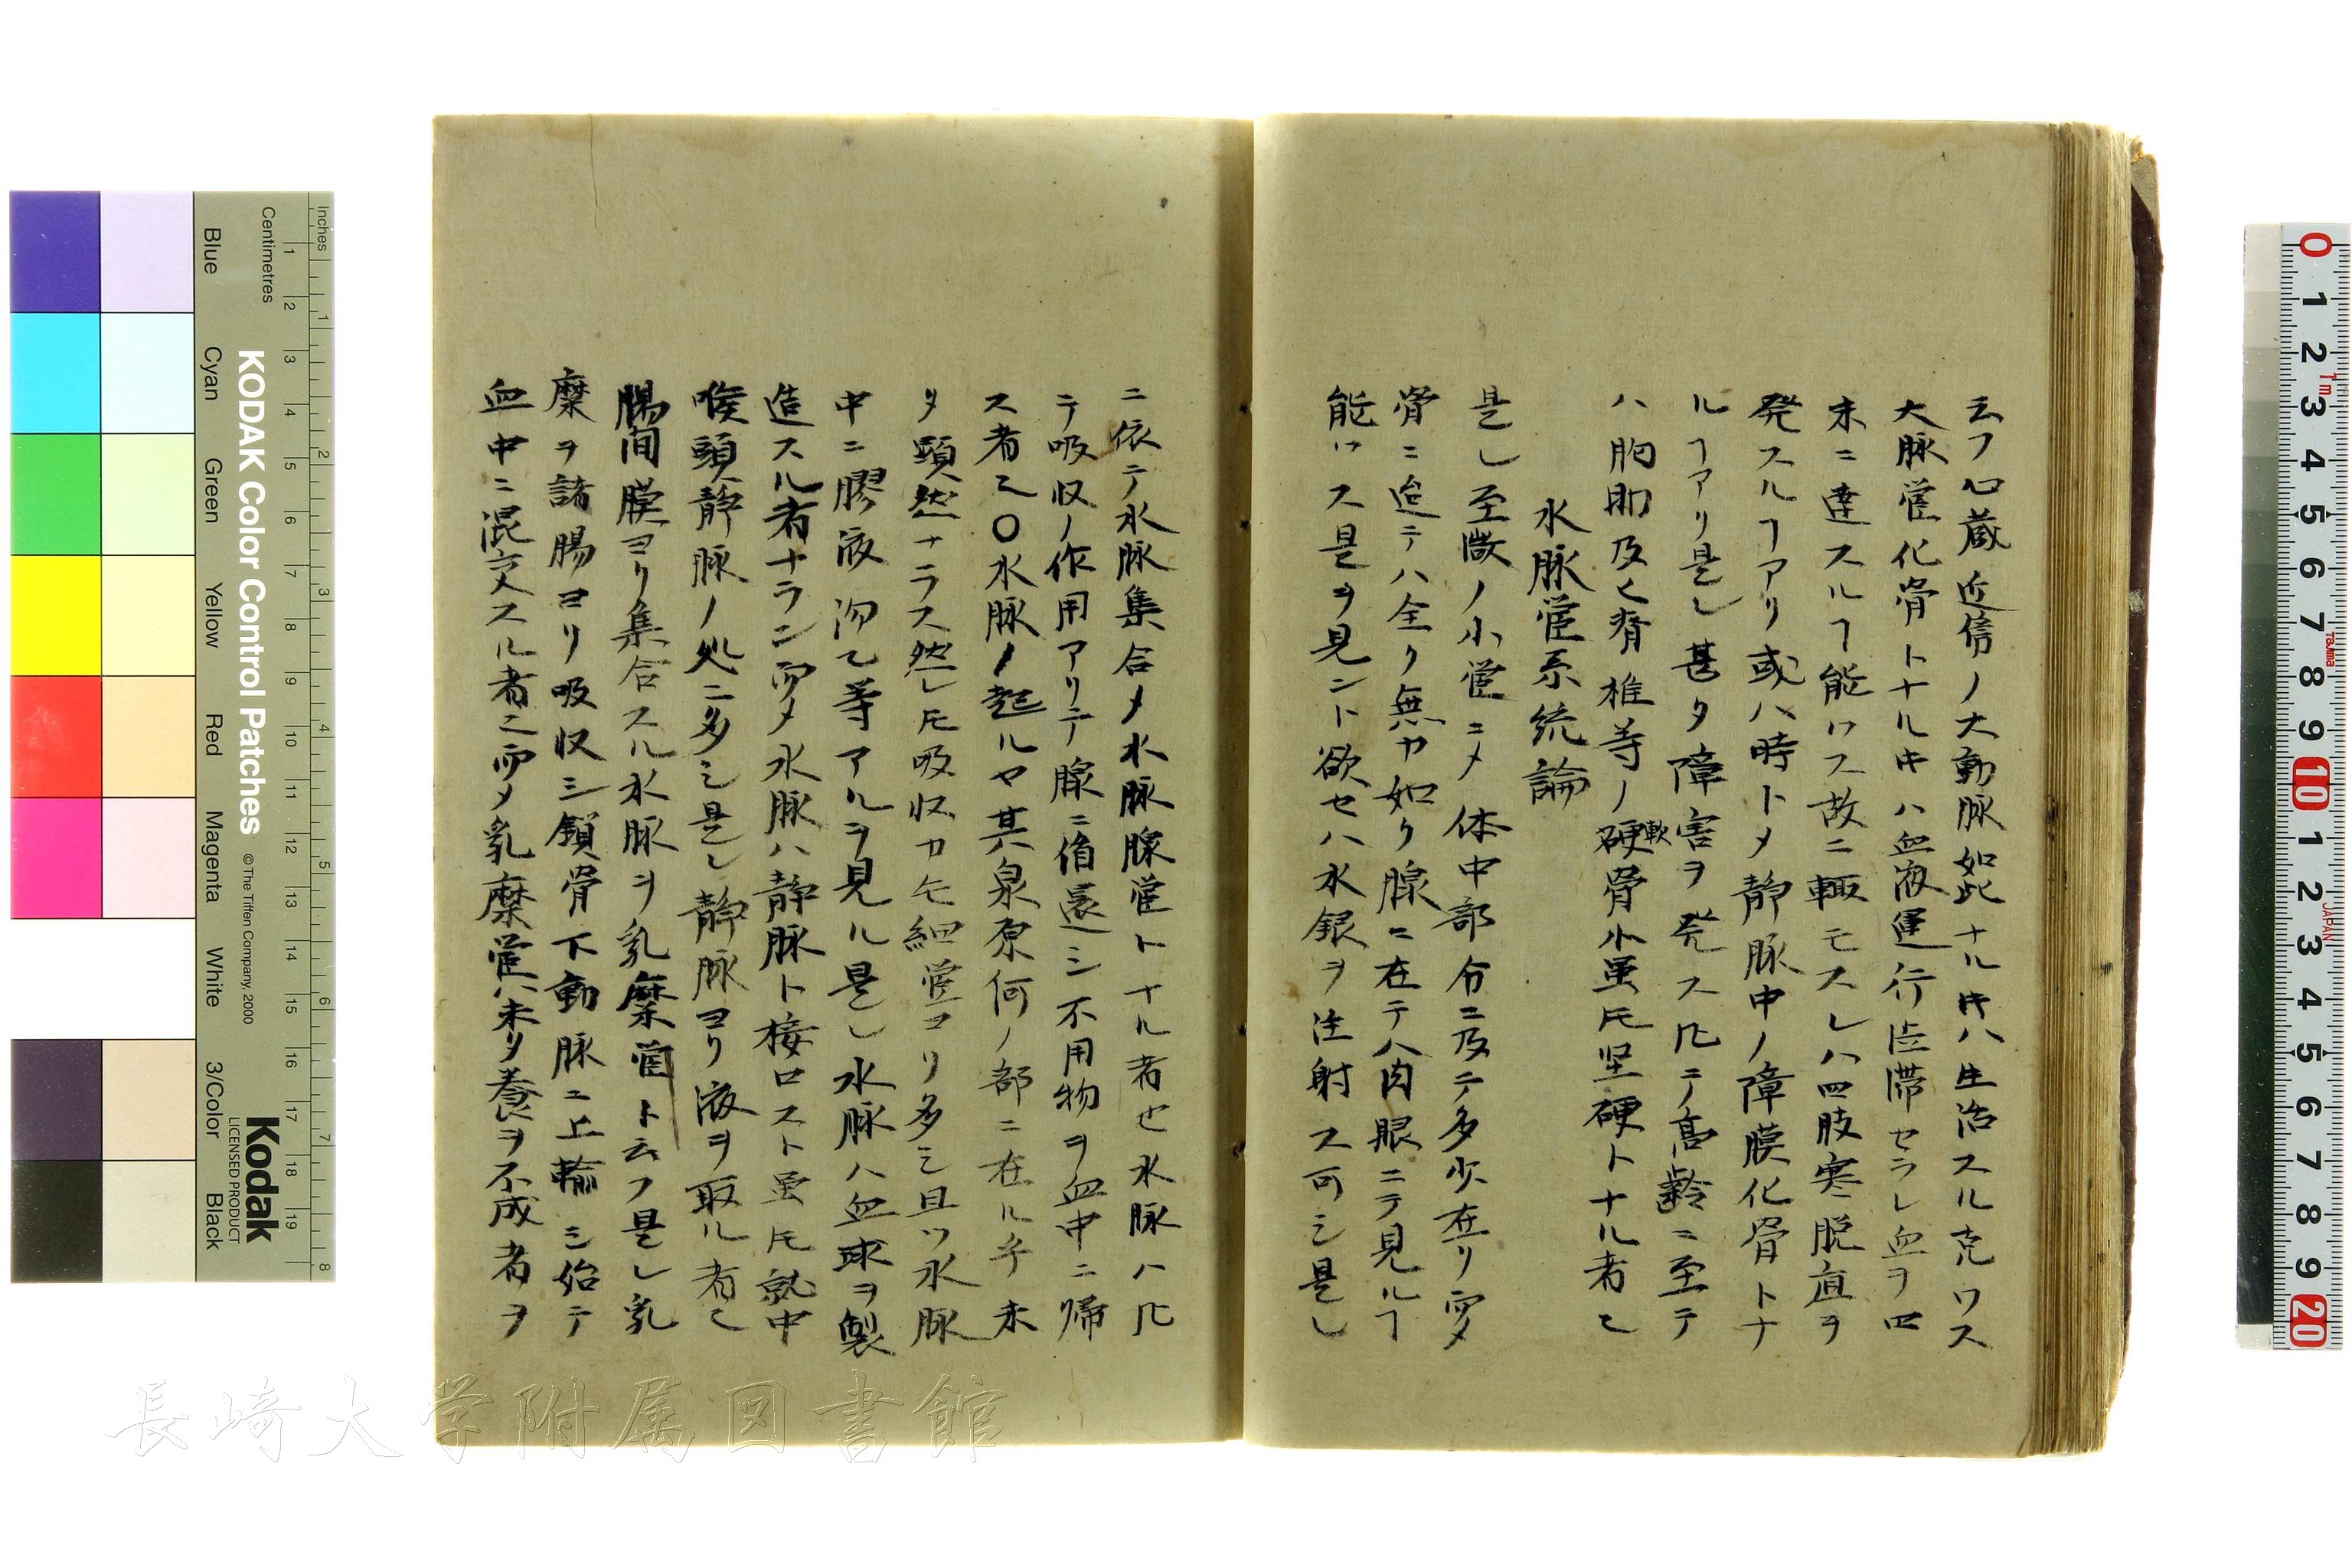 云フ心蔵近傍ノ大動脉如此ナルキハ生活スル克ワス
大脉管化骨トナルキハ血液運行澁滞セラレ血ヲ四
末ニ達スルヿ能ワス故ニ輙モスレハ四肢寒脱疽ヲ
発スルヿアリ或ハ時トメ静脉中ノ障膜化骨トナ
ルヿアリ是レ甚タ障害ヲ発ス凡テ高齢ニ至テ
ハ胸肋及ヒ脊椎等ノ硬軟骨小虽𪜈坚硬トナル者乀
水脉管系統論
是レ至微ノ小管ニメ体中部分ニ及テ多少在リ而メ
骨ニ迨テハ全ク無カ如ク腺ニ在テハ肉眼ニテ見ルヿ
能ワス是ヲ見ント欲セハ水銀ヲ注射ス可シ是レ
ニ依テ水脉集合メ水脉腺管トナル者也水脉ハ凡
テ吸収ノ作用アリテ腺ニ循還シ不用物ヲ血中ニ帰
ス者乀〇水脉ノ起ルヤ其泉原何ノ部ニ在ル乎未
タ顕然ナラス然レ𪜈吸収力モ細管ヨリ多シ且ツ水脉
中ニ膠液沕乙等アルヲ見ル是レ水脉ハ血球ヲ製
造スル者ナラン而メ水脉ハ静脉ト接口スト虽𪜈就中
喉頭静脉ノ処ニ多シ是レ静脉ヨリ液ヲ取ル者乀
腸間膜ヨリ集合スル水脉ヲ乳糜管ト云フ是レ乳
糜ヲ諸腸ヨリ吸収シ鎖骨下動脉ニ上輸シ始テ
血中ニ混交スル者乀而メ乳糜管ハ未タ養ヲ不成者ヲ
KODAK Color Control Patches
© The Tiffen Company, 2000
Kodak
LICENSED PRODUCT
Inches
Centimetres
Blue
Cyan
Green
Yellow
Red
Magenta
White
3/Color
Black
1 2 3 4 5 6 7 8
1 2 3 4 5 6 7 8 9 10 11 12 13 14 15 16 17 18 19
0 1 2 3 4 5 6 7 8 9 10 1 2 3 4 5 6 7 8 9 20
Tajima
JAPAN
長崎大学附属図書館